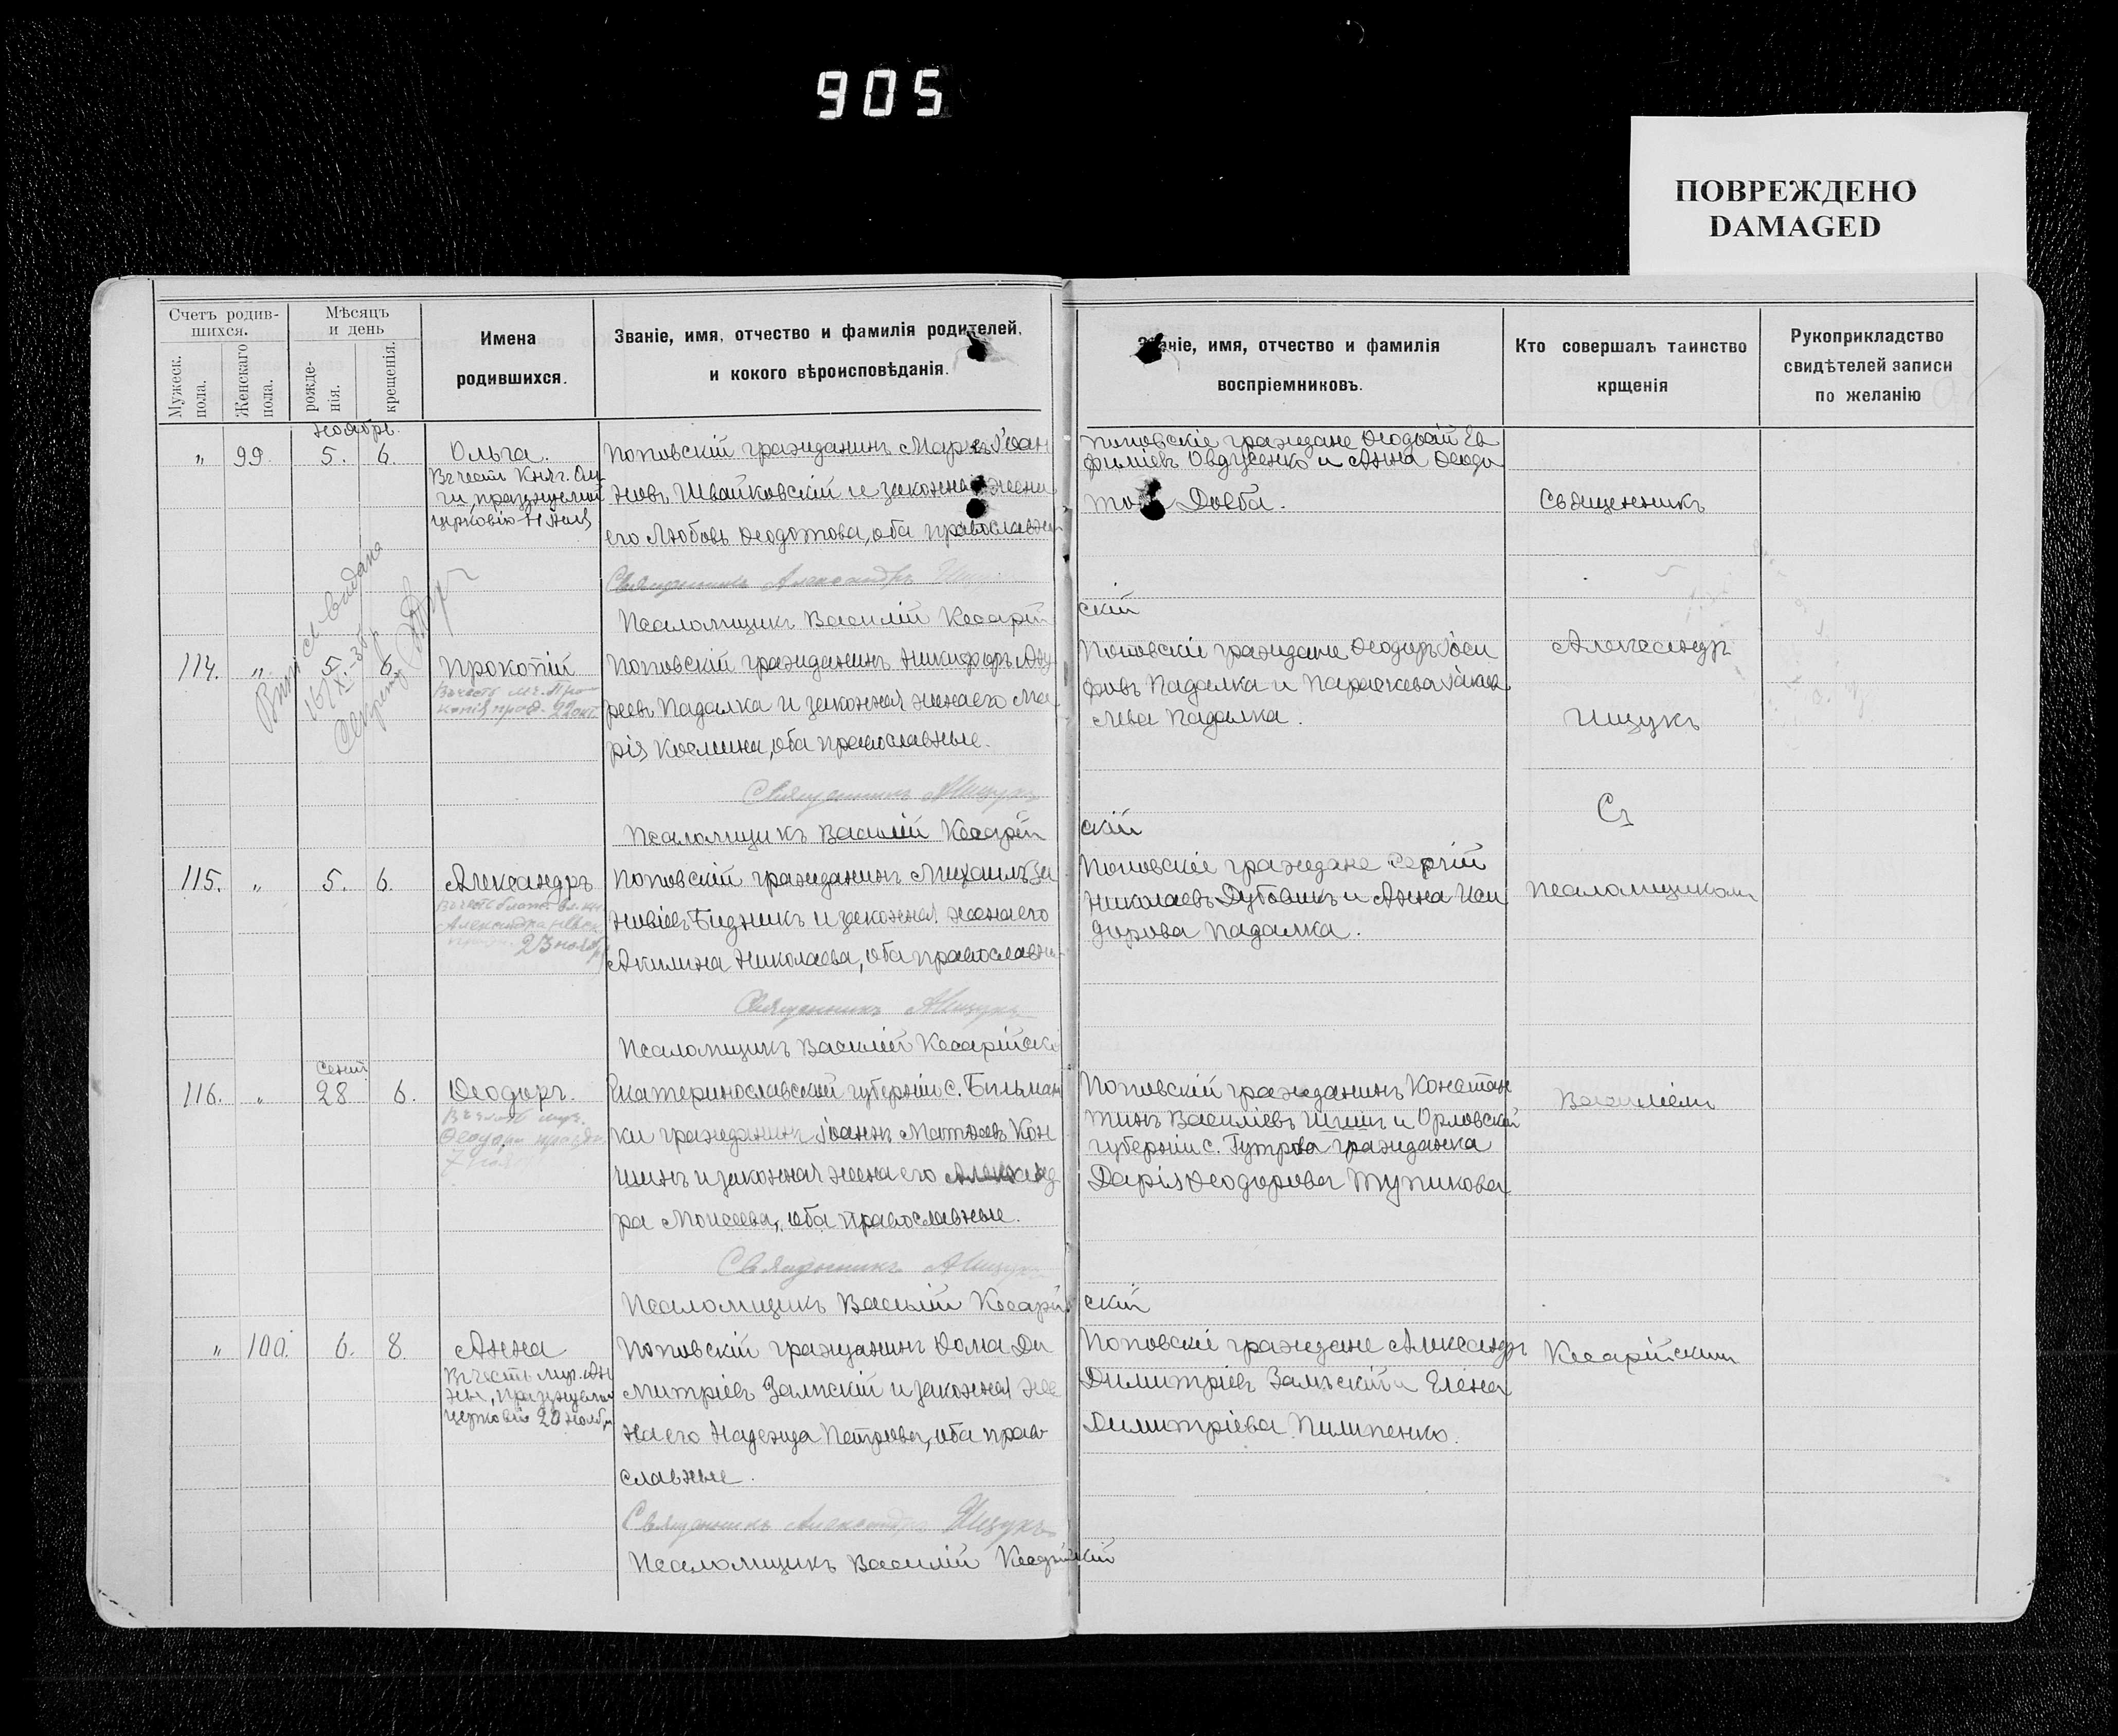 905
ПОВРЕЖДЕНО
DAMAGED
Счетъ родив-
шихся.
Мужеск.
пола.
Женскаго
пола.
Мѣсяцъ
и день
рожде-
нія.
крещенія.
Имена
родившихся.
Званіе, имя, отчество и фамилія родителей,
и кокого вѣроисповѣданія.
Званіе, имя, отчество и фамилія
воспріемниковъ.
Кто совершалъ таинство
крщенія
Рукоприкладство
свидѣтелей записи
по желанію
Ноябрь.
„ 99 5. 6. Ольга.
Въ честь Княг. Оль
ги, празднуемой
церковію 11 Іюля
Поповскій гражданинъ Маркъ Іоан
новъ Швайковскій и законная жена
его Любовь Ѳеодотова, оба православны
Священникъ Александръ
Псаломщикъ Василій Кесарій
скій
Поповскіе граждане Ѳеодосій Ев
фиміевъ Овдусенко и Анна Ѳеодо
Довба.
Священникъ
Выпись выдана
114. „ 5. 6. Прокопій
Въ честь мч. Про
копія празд. 22
Поповскій гражданинъ Никифоръ
реевъ Падалка и законная жена его Ма
рія Космина, оба православные.
Священникъ АИщукъ
Псаломщикъ Василій Кесарій
скій
Поповскіе граждане Ѳеодоръ Іоси
фовъ Падалка и Параскева Іаков
лева Падалка.
Александръ
Ищукъ
Съ
115. „ 5. 6. Александръ
Въ честь
Александра Невск
23 ноября
Поповскій гражданинъ Михаилъ Зи
новіевъ Бидникъ и законная жена его
Акилина Николаева, оба православны
Священникъ АИщукъ
Псаломщикъ Василій Кесарійскі
Поповскіе граждане Сергій
Николаевъ Дубовикъ и Анна Иси
дорова Падалка.
Псаломщикомъ
116. „ 28 6. Ѳеодоръ.
Въ честь
Екатеринославской губерніи с. Бильман
ки гражданинъ Іоаннъ Матѳеевъ Кон
шинъ и законная жена его Александ
ра Моисеева, оба православные.
Священникъ АИщукъ
Псаломщикъ Василій Кесарій
скій
Поповскій гражданинъ Констан
тинъ Василіевъ Шишъ и Орловской
губерніи с. Гутрова гражданка
Дарія Ѳеодорова Тупикова
Василіемъ
„ 100. 6. 8. Анна
Въ честь
ны, празднуемой
церковію 20 Ноября
Поповскій гражданинъ Ѳома Ди
митріевъ Залѣскій и законная же
на его Надежда Петрова, оба право
славные.
Священникъ Александръ Ищукъ
Псаломщикъ Василій Кесарійскій
Поповскіе граждане Александръ
Димитріевъ Залѣскій и Елена
Димитріева Пилипенко.
Кесарійскимъ